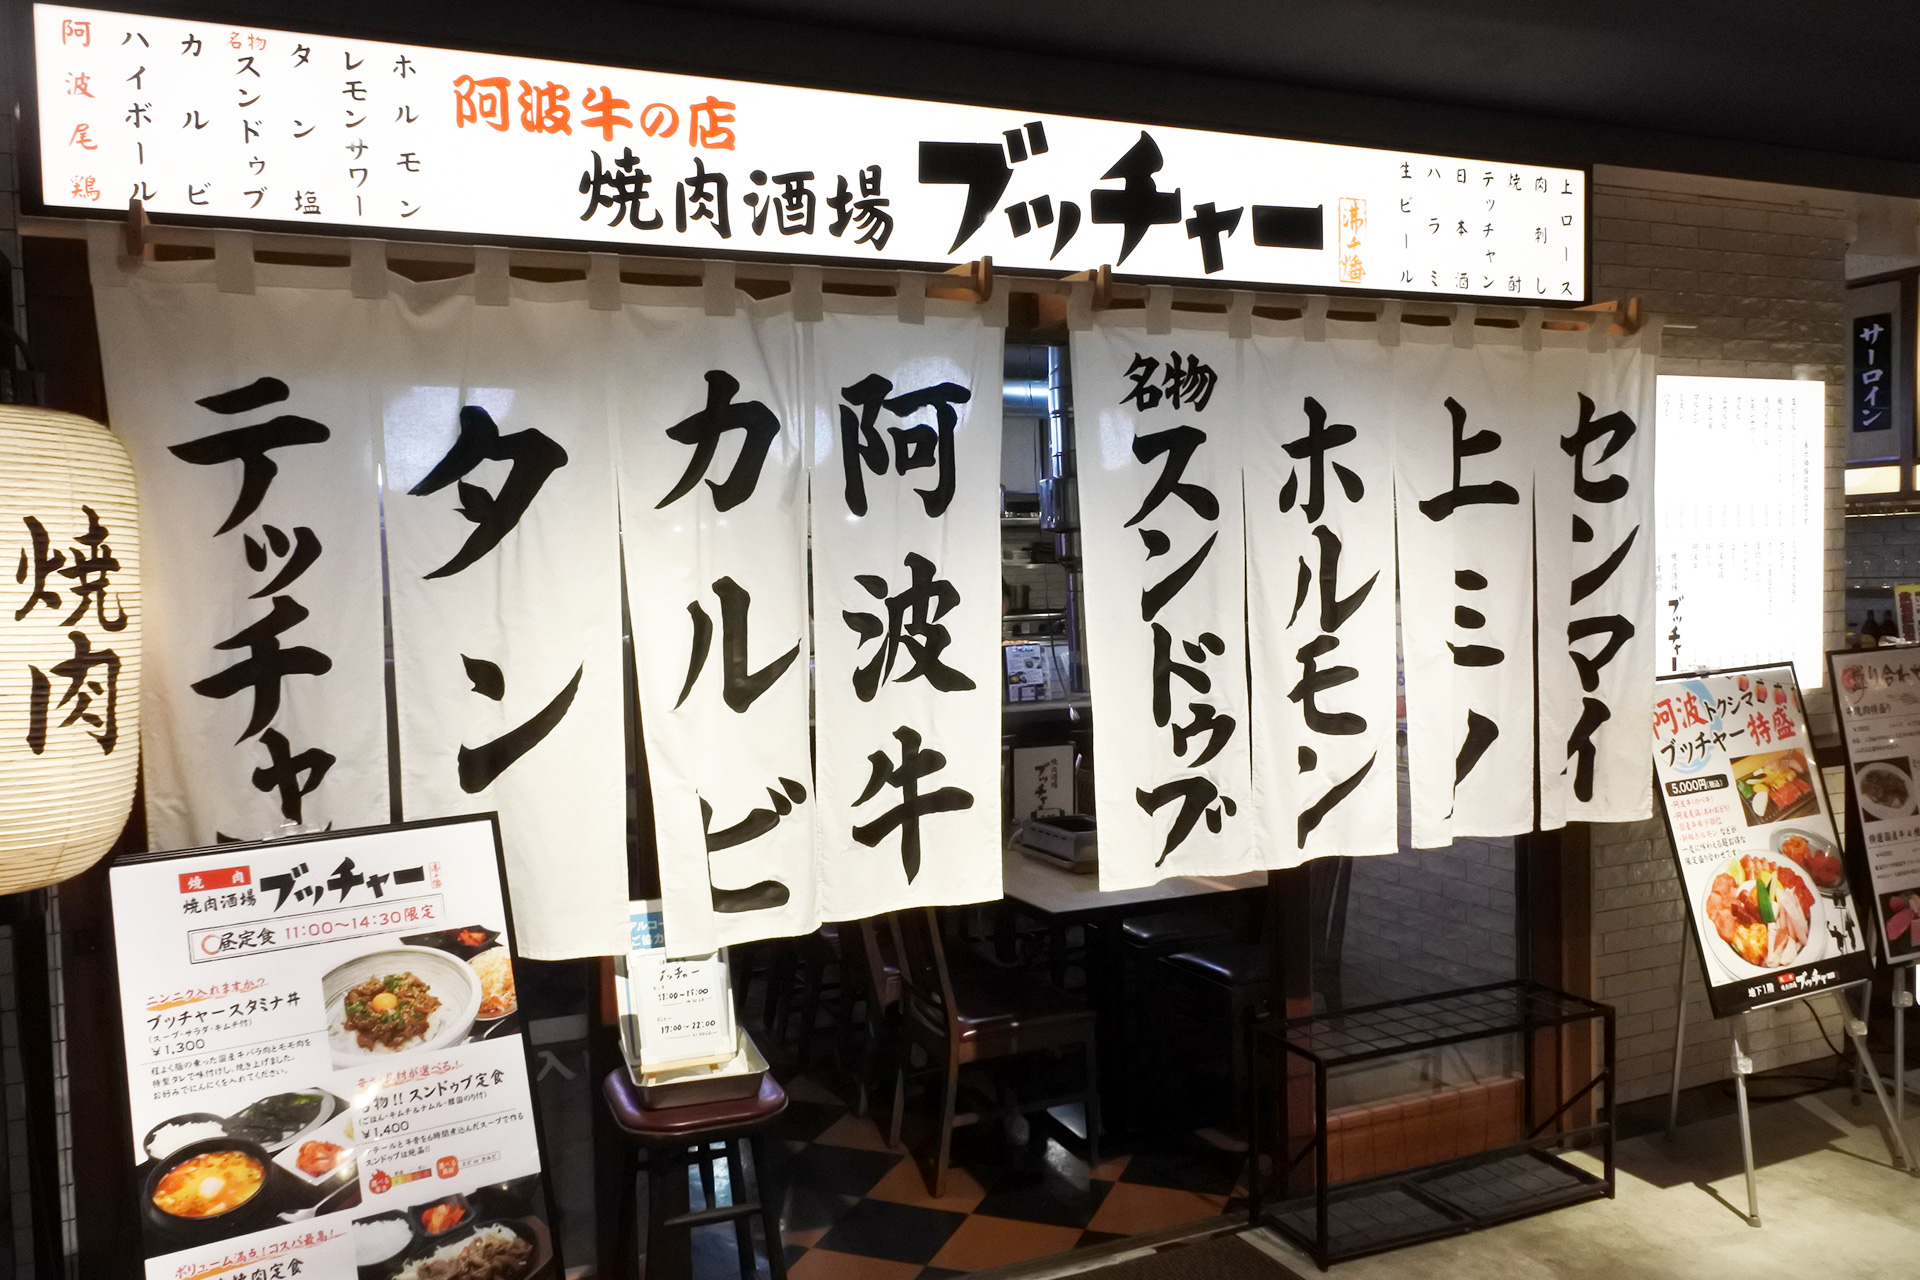 阿波尾鶏
ハイボール
カルビ
名物
スンドゥブ
タン塩
レモンサワー
ホルモン
阿波牛の店
焼肉酒場 ブッチャー
生ビール
ハラミ
日本酒
テッチャン
焼酎
肉刺し
上ロース
サーロイン
焼肉
テッチャ
タン
カルビ
阿波牛
名物
スンドゥブ
ホルモン
上ミノ
センマイ
焼肉
焼肉酒場 ブッチャー
昼定食 11:00〜14:30限定
ニンニク入れますか?
ブッチャースタミナ丼
(スープ・サラダ・キムチ付)
¥1,300
程よく脂の乗った国産牛バラ肉とモモ肉を
特製タレで味付けし、焼き上げました。
お好みでにんにくを入れてください。
材が選べる!
名物!!スンドゥブ定食
(ごはん・キムチ&ナムル・韓国のり付)
¥1,400
テールと牛骨を6時間煮込んだスープで作る
スンドゥブは絶品!!
ボリューム満点!コスパ最高!
焼肉定食
ブッチャー
11:00〜15:00
17:00〜22:00
焼肉酒場
ブッチャー
焼肉酒場
ブッチャー
阿波トクシマ
ブッチャー特盛
5,000円(税込)
一度に味わえる超お得な
限定盛り合わせです!
地下1階
焼肉酒場 ブッチャー
盛り合わせ